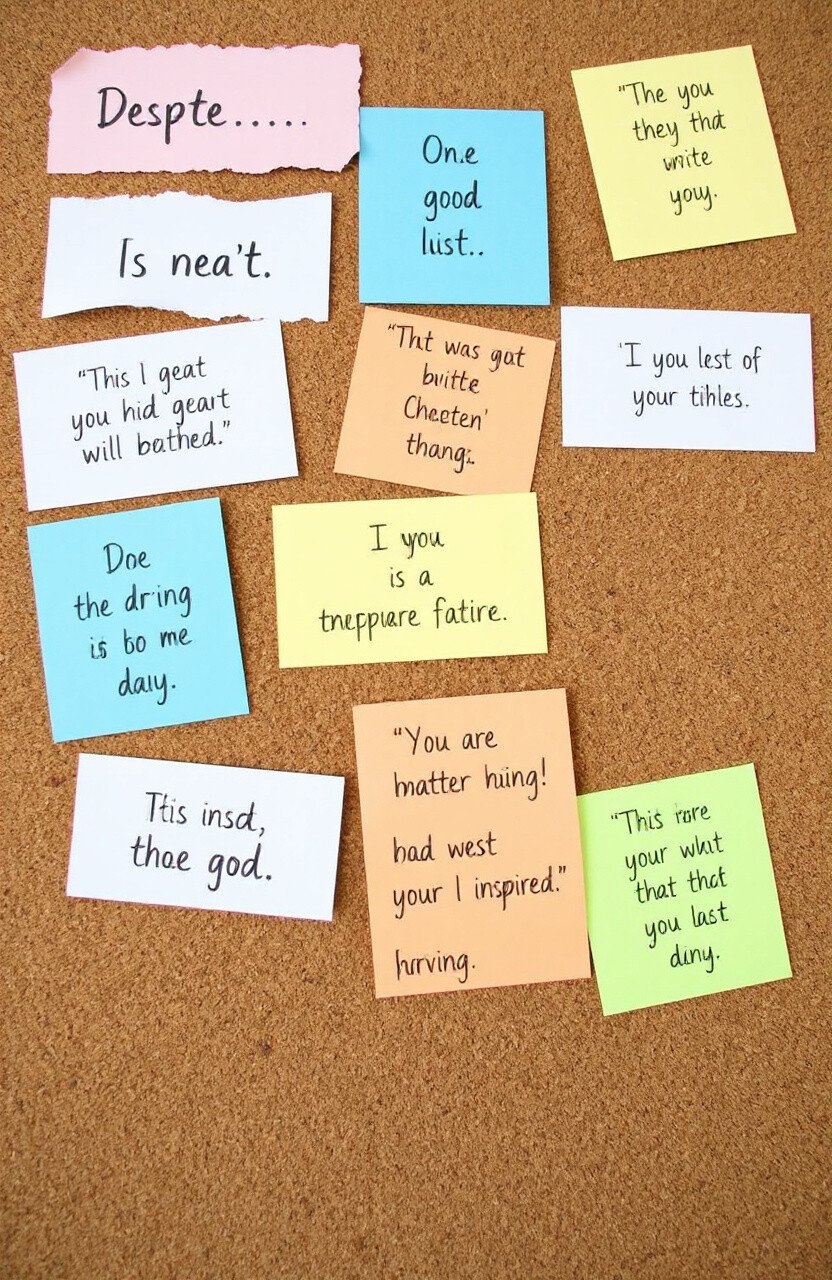 Despte.....
One
good
list..
"The you
they that
write
youy.
Is nea't.
"This I geat
you hid geart
will bathed."
"Tht was gat
buitte
Cheeten'
thang.
'I you lest of
your tihles.
Doe
the dring
is bo me
daly.
I you
is a
tneppiare fatire.
"You are
hnatter hiing!
bad west
your I inspired."
hurving.
Ttis insd,
thoe god.
"This rore
your whit
that that
you last
diny.